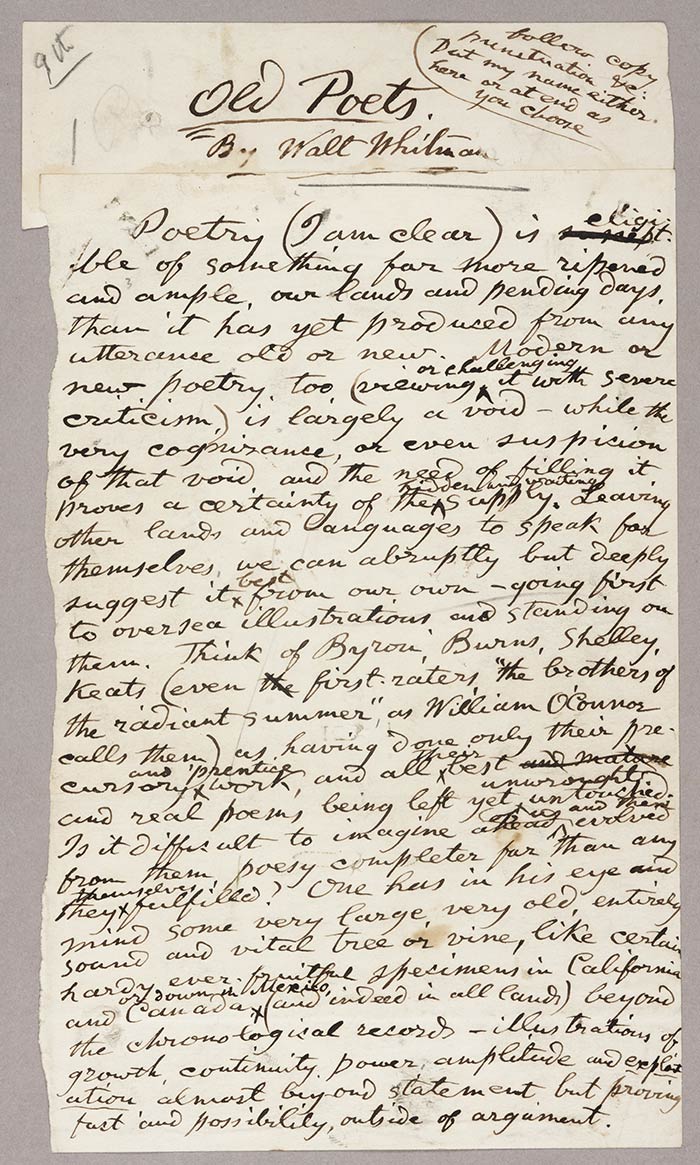 9th
follow copy
punctuation &c:
Put my name either
here or at end as
you choose
Old Poets.
By Walt Whitman
Poetry (I am clear) is eligi-
ble of something far more ripened
and ample, our lands and pending days,
than it has yet produced from any
utterance old or new. Modern or
new poetry, too (viewing or challenging it with severe
criticism,) is largely a void – while the
very cognizance, or even suspicion
of that void and the need of filling it
proves a certainty of the hidden and waiting supply. Leaving
other lands and languages to speak for
themselves, we can abruptly but deeply
suggest it best from our own – going first
to oversea illustrations and standing on
them. Think of Byron, Burns, Shelley,
Keats (even first-raters, "the brothers of
the radiant summer", as William O'Connor
calls them) as having done only their pre-
cursory and 'prentice work, and all their best and mature
and real poems being left yet unwrought untouched.
Is it difficult to imagine ahead of us and them evolved
from them, poesy completer far than any
they themselves fulfilled? One has in his eye and
mind some very large, very old, entirely
sound and vital tree or vine, like certain
hardy ever-fruitful specimens in California
and Canada or down in Mexico, (and indeed in all lands) beyond
the chronological records – illustrations of
growth, continuity, power, amplitude and exploit-
ation almost beyond statement but proving
fact and possibility, outside of argument.